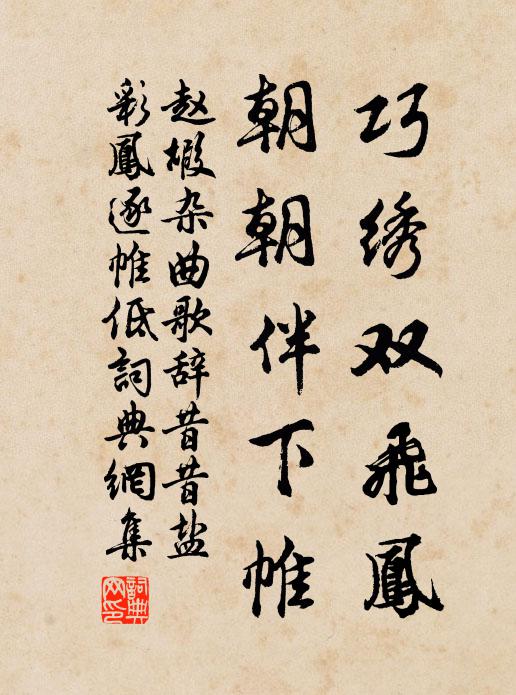 巧绣双飞鳳
朝朝伴下帷
赵嘏杂曲歌辞昔昔盐
彩鳳逐帷低詞典網集
詞典网印